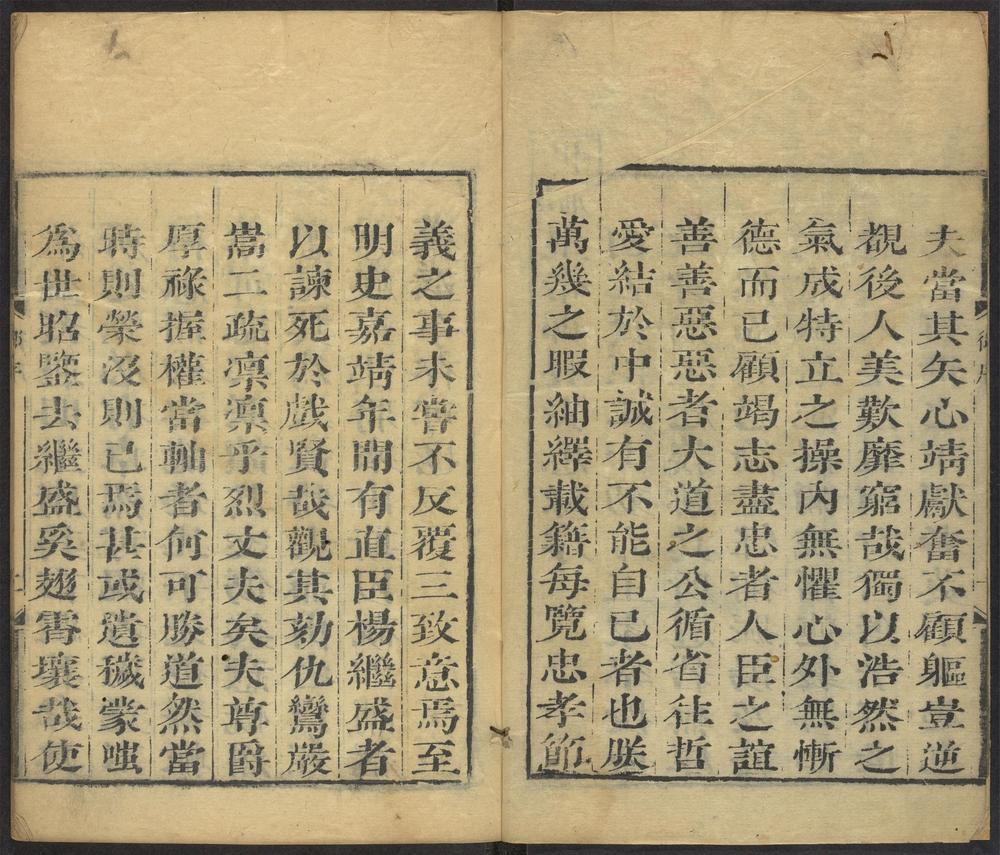 夫當其矢心靖獻奮不顧軀豈逆
覩後人美歎靡窮哉獨以浩然之
氣成特立之操內無懼心外無慚
德而已顧竭志盡忠者人臣之誼
善善惡惡者大道之公循省往哲
愛結於中誠有不能自已者也朕
萬幾之暇紬繹載籍每覽忠孝節
義之事未嘗不反覆三致意焉至
明史嘉靖年間有直臣楊繼盛者
以諫死於戲賢哉觀其劾仇鸞嚴
嵩二疏凛凛乎烈丈夫矣夫尊爵
厚祿握權當軸者何可勝道然當
時則榮沒則已焉甚或遺穢蒙嗤
為世昭鑒去繼盛奚翅霄壤哉使